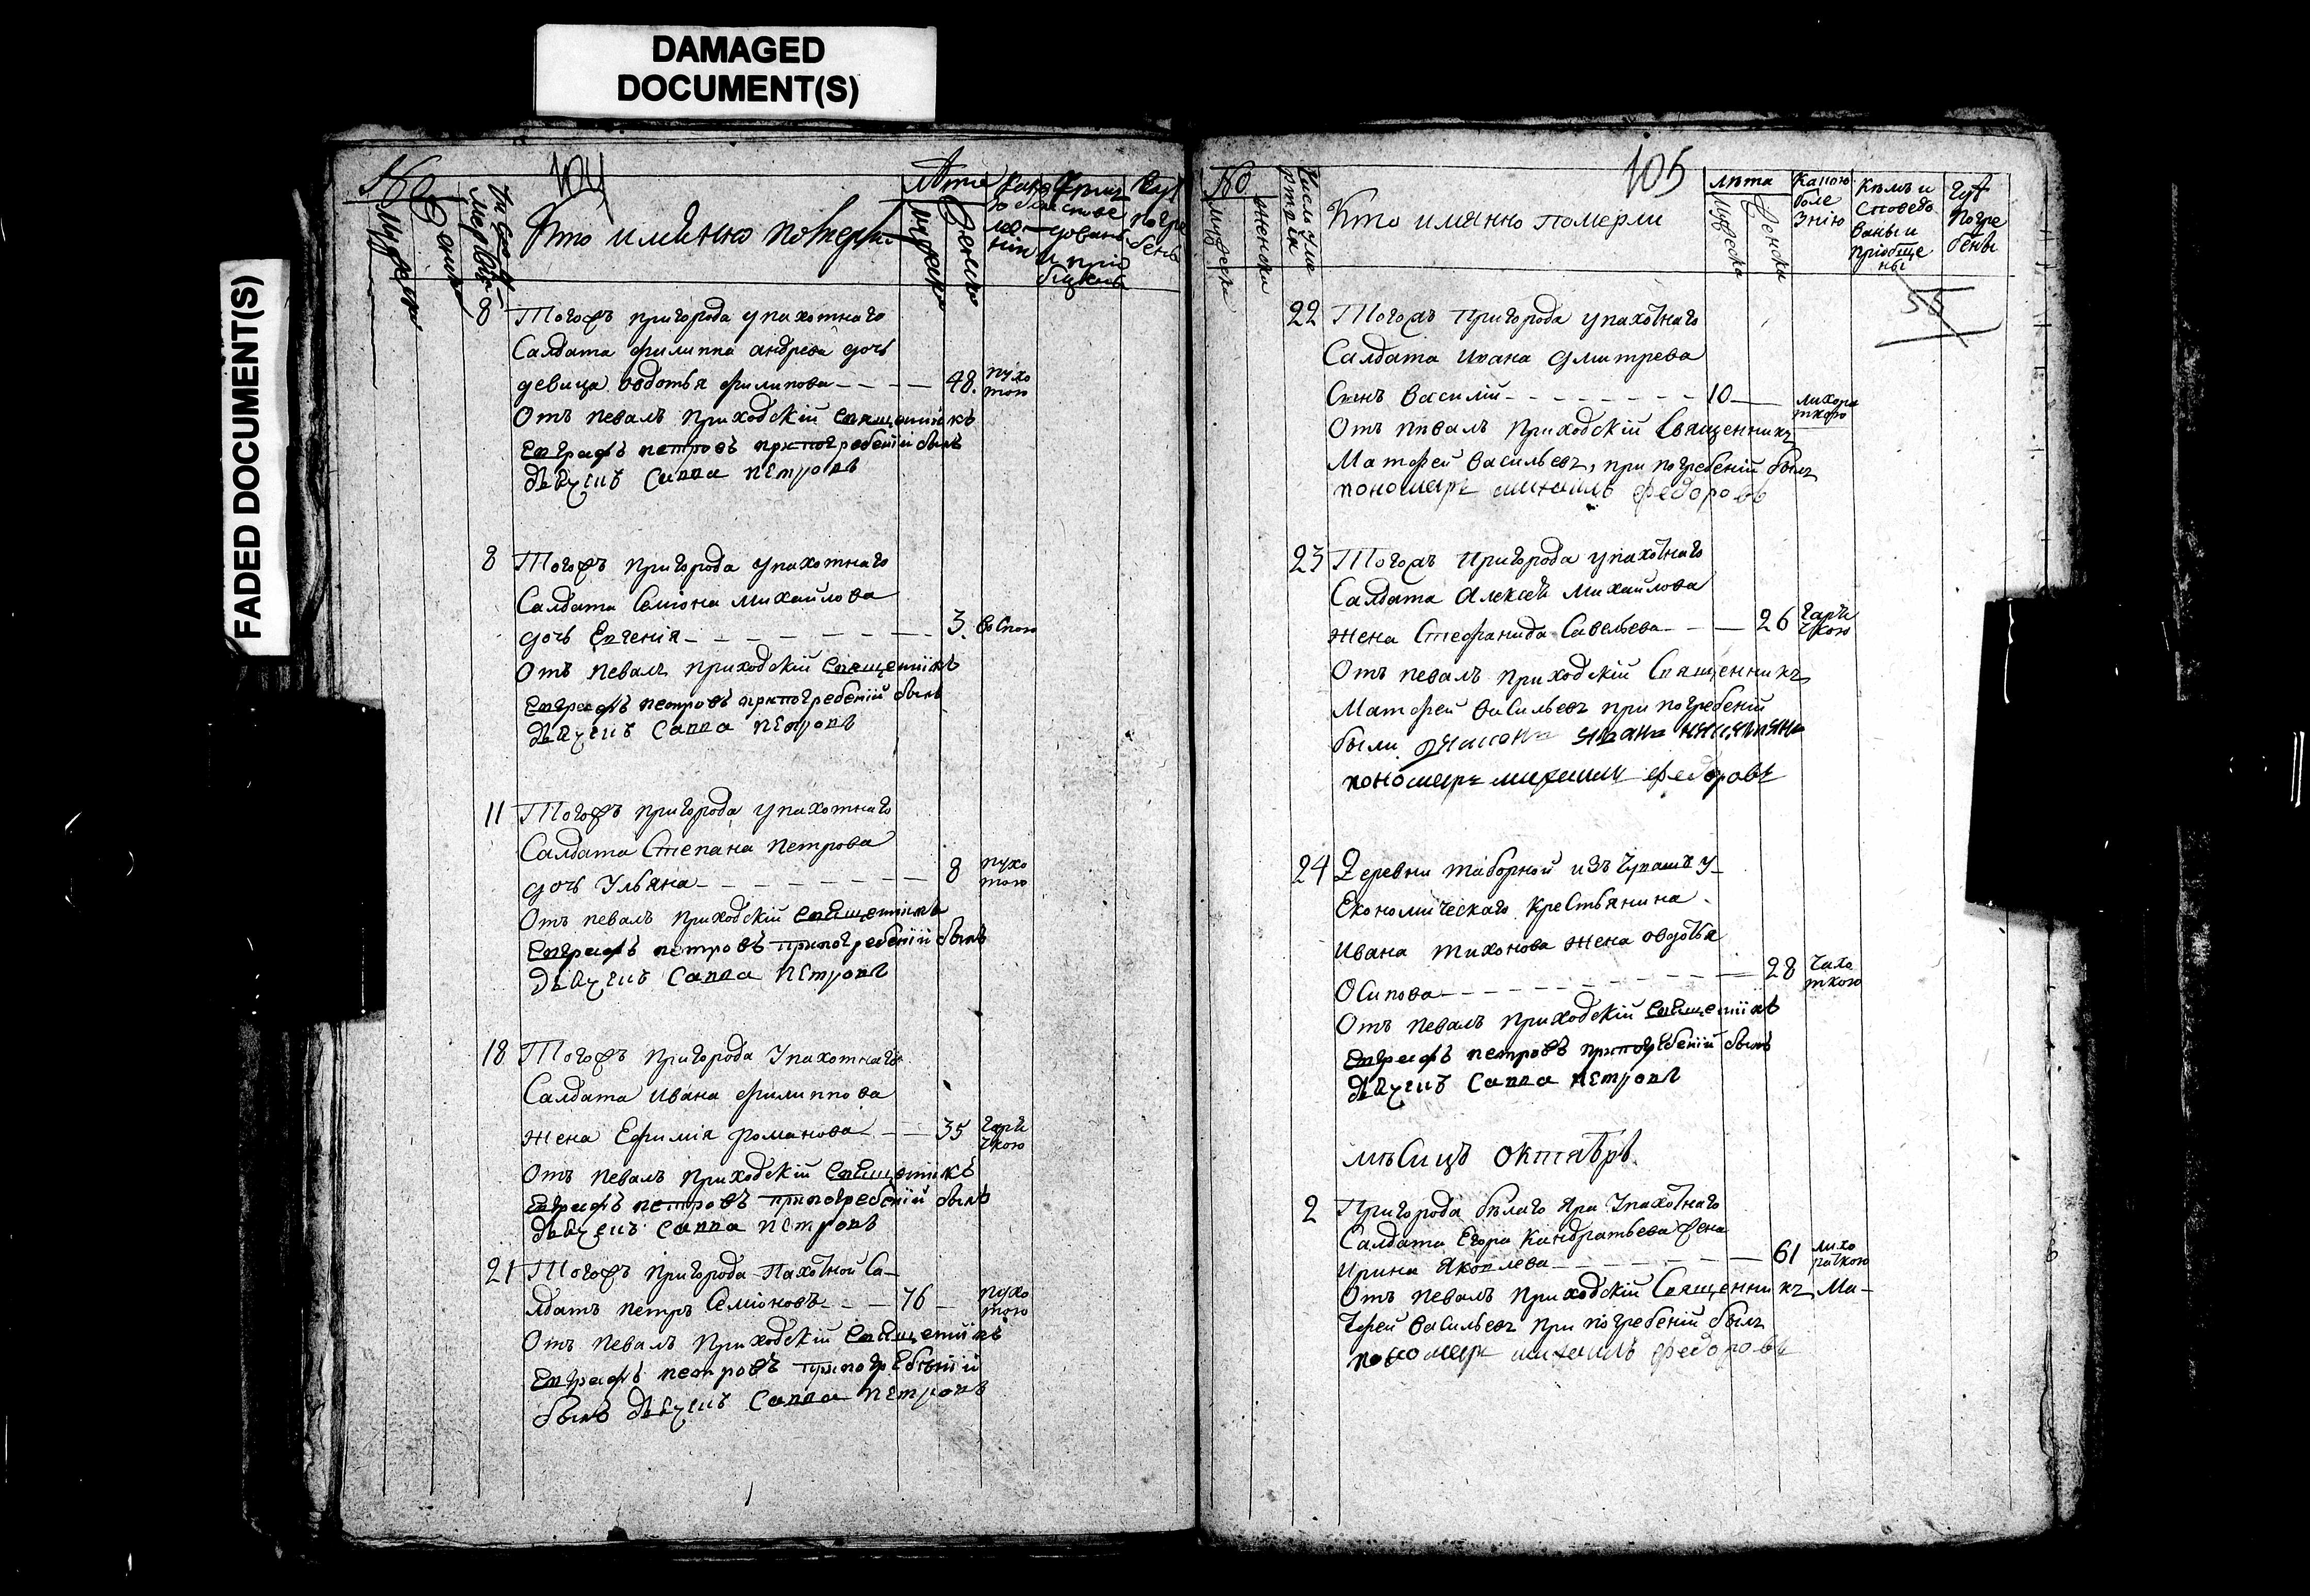 DAMAGED
DOCUMENT(S)
FADED DOCUMENT(S)
104
№
Кто имянно померли
Лѣта
8 Тогожъ пригорода упахотнаго
Салдата филиппа андреева дочь
девица овдотья филипова 48. пухо
тою
Отъ певалъ приходскій священникъ
Евграфъ петровъ при погребеніи былъ
дьячекъ Савва петровъ
8 Тогожъ пригорода упахотнаго
Салдата Семіона Михайлова
дочь Евгенія 3. воспою
Отъ певалъ приходскій священникъ
Евграфъ петровъ при погребеніи былъ
дьячекъ Савва петровъ
11 Тогожъ пригорода упахотнаго
Салдата Степана петрова
дочь Ульяна 8 пухо
тою
Отъ певалъ приходскій священникъ
Евграфъ петровъ при погребеніи былъ
дьячекъ Савва петровъ
18 Тогожъ пригорода упахотнаго
Салдата ивана филиппова
жена Ефимія романова 35 гаря
чкою
Отъ певалъ приходскій священникъ
Евграфъ петровъ при погребеніи былъ
дьячекъ Савва петровъ
21 Тогожъ пригорода пахотной Са-
лдатъ петръ Семіоновъ 76 пухо
тою
Отъ певалъ приходскій священникъ
Евграфъ петровъ при погребеніи
былъ дьячекъ Савва петровъ
105
№
Кто имянно померли
лѣта
Какою
боле
знію
Кѣмъ и
Споведо
ваны и
пріобще
ны
Гдѣ
погре
бены
55
22 Тогожъ пригорода упахотнаго
Салдата ивана дмитрева
Сынъ василій 10 лихора
ткою
Отъ пѣвалъ приходскій Священникъ
Матфей васильевъ, при погребеній былъ
пономарь михаилъ федоровъ
23 Тогожъ пригорода упахотнаго
Салдата Алексѣя Михайлова
жена Стефанида Савельева 26 гаря
чкою
Отъ певалъ приходскій Священникъ
Матфей васильевъ при погребеній
были
пономарь михаилъ федоровъ
24 Деревни таборной изъ Чувашъ у-
Економическаго крестьянина
ивана тихонова жена овдотья
Осипова 28 чахо
ткою
Отъ певалъ приходскій священникъ
Евграфъ петровъ при погребеніи былъ
дьячекъ Савва петровъ
мѣсицъ октябрь
2 Пригорода бѣлаго яра упахотнаго
Салдата Егора Кандратьева жена
ирина яковлева 61 лихо
раткою
Отъ певалъ приходскій Священникъ Ма-
тфей васильевъ при погребеній былъ
пономарь михаилъ федоровъ